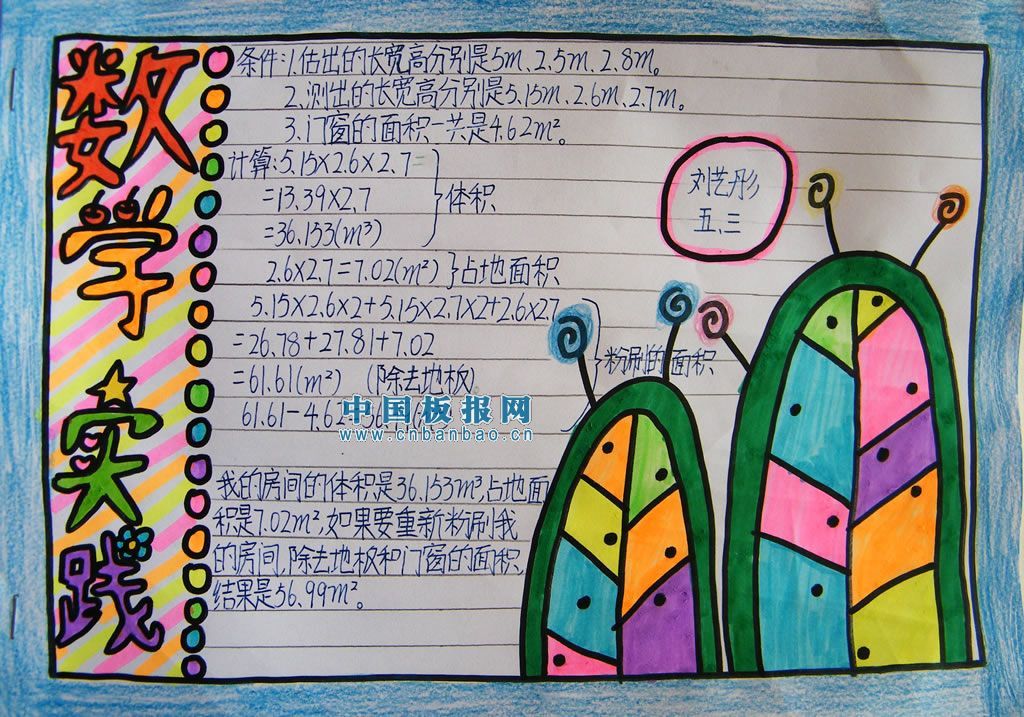 数学实践
条件:1.估出的长宽高分别是5m、2.5m、2.8m。
2.测出的长宽高分别是5.15m、2.6m、2.7m。
3.门窗的面积一共是4.62m²。
计算:5.15×2.6×2.7=
=13.39×2.7
=36.153(m³)
}体积
2.6×2.7=7.02(m²)}占地面积
5.15×2.6×2+5.15×2.7×2+2.6×2.7
=26.78+27.81+7.02
=61.61(m²) (除去地板)
61.61-4.62
}粉刷的面积
刘艺彤
五、三
中国板报网
www.cnbanbao.cn
我的房间的体积是36.153m³,占地面
积是7.02m².如果要重新粉刷我
的房间,除去地板和门窗的面积,
结果是56.99m²。